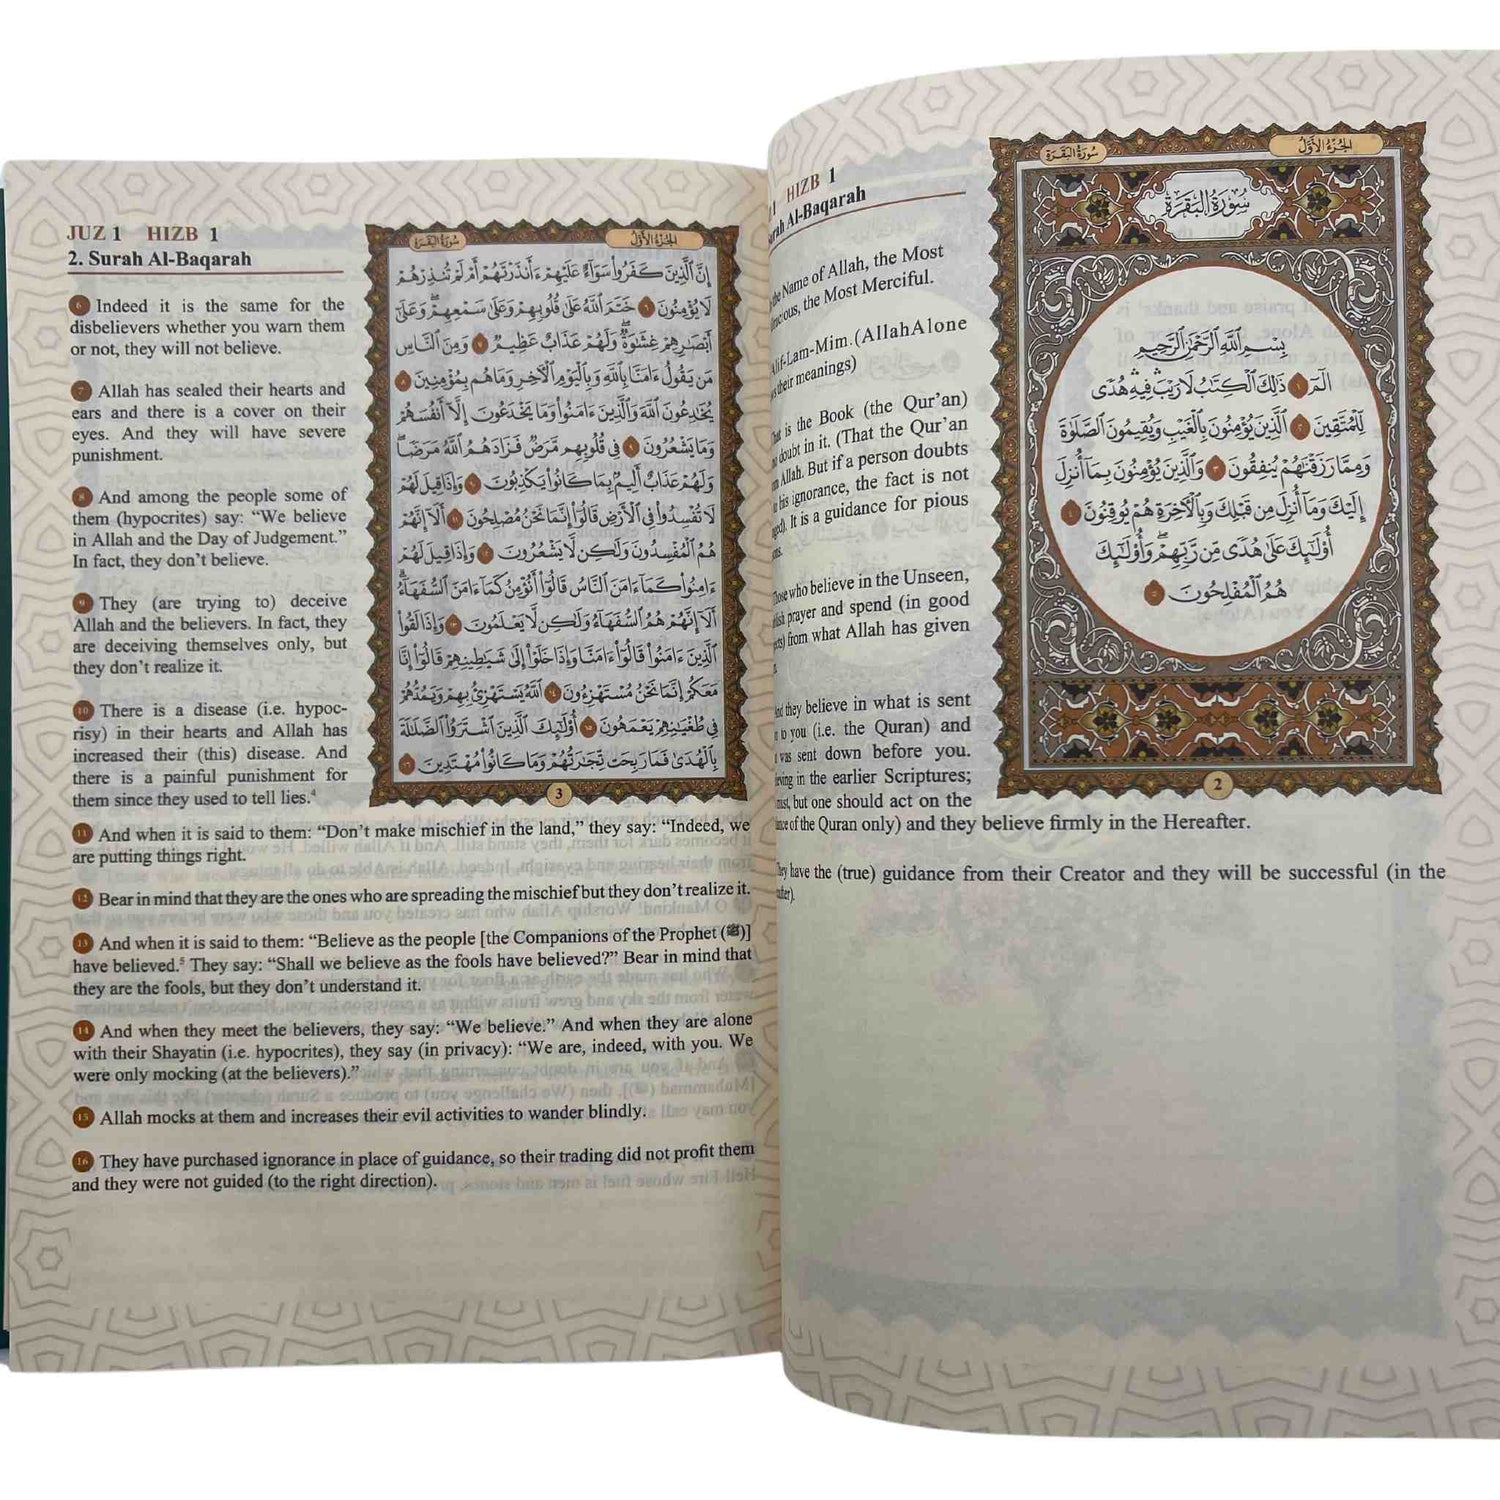 JUZ 1 HIZB 1
2. Surah Al-Baqarah
6 Indeed it is the same for the
disbelievers whether you warn them
or not, they will not believe.
7 Allah has sealed their hearts and
ears and there is a cover on their
eyes. And they will have severe
punishment.
8 And among the people some of
them (hypocrites) say: “We believe
in Allah and the Day of Judgement.”
In fact, they don’t believe.
9 They (are trying to) deceive
Allah and the believers. In fact, they
are deceiving themselves only, but
they don’t realize it.
10 There is a disease (i.e. hypoc-
risy) in their hearts and Allah has
increased their (this) disease. And
there is a painful punishment for
them since they used to tell lies.⁴
الجزء الأول
سورة البقرة
إِنَّ ٱلَّذِينَ كَفَرُوا۟ سَوَآءٌ عَلَيْهِمْ ءَأَنذَرْتَهُمْ أَمْ لَمْ تُنذِرْهُمْ
لَا يُؤْمِنُونَ ٦ خَتَمَ ٱللَّهُ عَلَىٰ قُلُوبِهِمْ وَعَلَىٰ سَمْعِهِمْ ۖ وَعَلَىٰٓ
أَبْصَـٰرِهِمْ غِشَـٰوَةٌ ۖ وَلَهُمْ عَذَابٌ عَظِيمٌ ٧ وَمِنَ ٱلنَّاسِ
مَن يَقُولُ ءَامَنَّا بِٱللَّهِ وَبِٱلْيَوْمِ ٱلْـَٔاخِرِ وَمَا هُم بِمُؤْمِنِينَ ٨
يُخَـٰدِعُونَ ٱللَّهَ وَٱلَّذِينَ ءَامَنُوا۟ وَمَا يَخْدَعُونَ إِلَّآ أَنفُسَهُمْ
وَمَا يَشْعُرُونَ ٩ فِى قُلُوبِهِم مَّرَضٌ فَزَادَهُمُ ٱللَّهُ مَرَضًا ۖ
وَلَهُمْ عَذَابٌ أَلِيمٌۢ بِمَا كَانُوا۟ يَكْذِبُونَ ١٠ وَإِذَا قِيلَ لَهُمْ
لَا تُفْسِدُوا۟ فِى ٱلْأَرْضِ قَالُوٓا۟ إِنَّمَا نَحْنُ مُصْلِحُونَ ١١ أَلَآ إِنَّهُمْ
هُمُ ٱلْمُفْسِدُونَ وَلَـٰكِن لَّا يَشْعُرُونَ ١٢ وَإِذَا قِيلَ لَهُمْ
ءَامِنُوا۟ كَمَآ ءَامَنَ ٱلنَّاسُ قَالُوٓا۟ أَنُؤْمِنُ كَمَآ ءَامَنَ ٱلسُّفَهَآءُ ۗ
أَلَآ إِنَّهُمْ هُمُ ٱلسُّفَهَآءُ وَلَـٰكِن لَّا يَعْلَمُونَ ١٣ وَإِذَا لَقُوا۟
ٱلَّذِينَ ءَامَنُوا۟ قَالُوٓا۟ ءَامَنَّا وَإِذَا خَلَوْا۟ إِلَىٰ شَيَـٰطِينِهِمْ قَالُوٓا۟ إِنَّا
مَعَكُمْ إِنَّمَا نَحْنُ مُسْتَهْزِءُونَ ١٤ ٱللَّهُ يَسْتَهْزِئُ بِهِمْ وَيَمُدُّهُمْ
فِى طُغْيَـٰنِهِمْ يَعْمَهُونَ ١٥ أُو۟لَـٰٓئِكَ ٱلَّذِينَ ٱشْتَرَوُا۟ ٱلضَّلَـٰلَةَ
بِٱلْهُدَىٰ فَمَا رَبِحَت تِّجَـٰرَتُهُمْ وَمَا كَانُوا۟ مُهْتَدِينَ ١٦
3
11 And when it is said to them: “Don’t make mischief in the land,” they say: “Indeed, we
are putting things right.
12 Bear in mind that they are the ones who are spreading the mischief but they don’t realize it.
13 And when it is said to them: “Believe as the people [the Companions of the Prophet (ﷺ)]
have believed.⁵ They say: “Shall we believe as the fools have believed?” Bear in mind that
they are the fools, but they don’t understand it.
14 And when they meet the believers, they say: “We believe.” And when they are alone
with their Shayatin (i.e. hypocrites), they say (in privacy): “We are, indeed, with you. We
were only mocking (at the believers).”
15 Allah mocks at them and increases their evil activities to wander blindly.
16 They have purchased ignorance in place of guidance, so their trading did not profit them
and they were not guided (to the right direction).
1 HIZB 1
Al-Baqarah
the Name of Allah, the Most
the Most Merciful.
Alif-Lam-Mim. (Allah Alone
their meanings)
is the Book (the Qur’an)
doubt in it. (That the Qur’an
Allah. But if a person doubts
his ignorance, the fact is not
It is a guidance for pious
Those who believe in the Unseen,
prayer and spend (in good
from what Allah has given
And they believe in what is sent
to you (i.e. the Quran) and
was sent down before you.
in the earlier Scriptures;
but one should act on the
of the Quran only) and they believe firmly in the Hereafter.
They have the (true) guidance from their Creator and they will be successful (in the
الجزء الأول
سورة البقرة
سورة البقرة
بِسْمِ ٱللَّهِ ٱلرَّحْمَـٰنِ ٱلرَّحِيمِ
الٓمٓ ١ ذَٰلِكَ ٱلْكِتَـٰبُ لَا رَيْبَ ۛ فِيهِ ۛ هُدًى
لِّلْمُتَّقِينَ ٢ ٱلَّذِينَ يُؤْمِنُونَ بِٱلْغَيْبِ وَيُقِيمُونَ ٱلصَّلَوٰةَ
وَمِمَّا رَزَقْنَـٰهُمْ يُنفِقُونَ ٣ وَٱلَّذِينَ يُؤْمِنُونَ بِمَآ أُنزِلَ
إِلَيْكَ وَمَآ أُنزِلَ مِن قَبْلِكَ وَبِٱلْـَٔاخِرَةِ هُمْ يُوقِنُونَ ٤
أُو۟لَـٰٓئِكَ عَلَىٰ هُدًى مِّن رَّبِّهِمْ ۖ وَأُو۟لَـٰٓئِكَ
هُمُ ٱلْمُفْلِحُونَ ٥
2